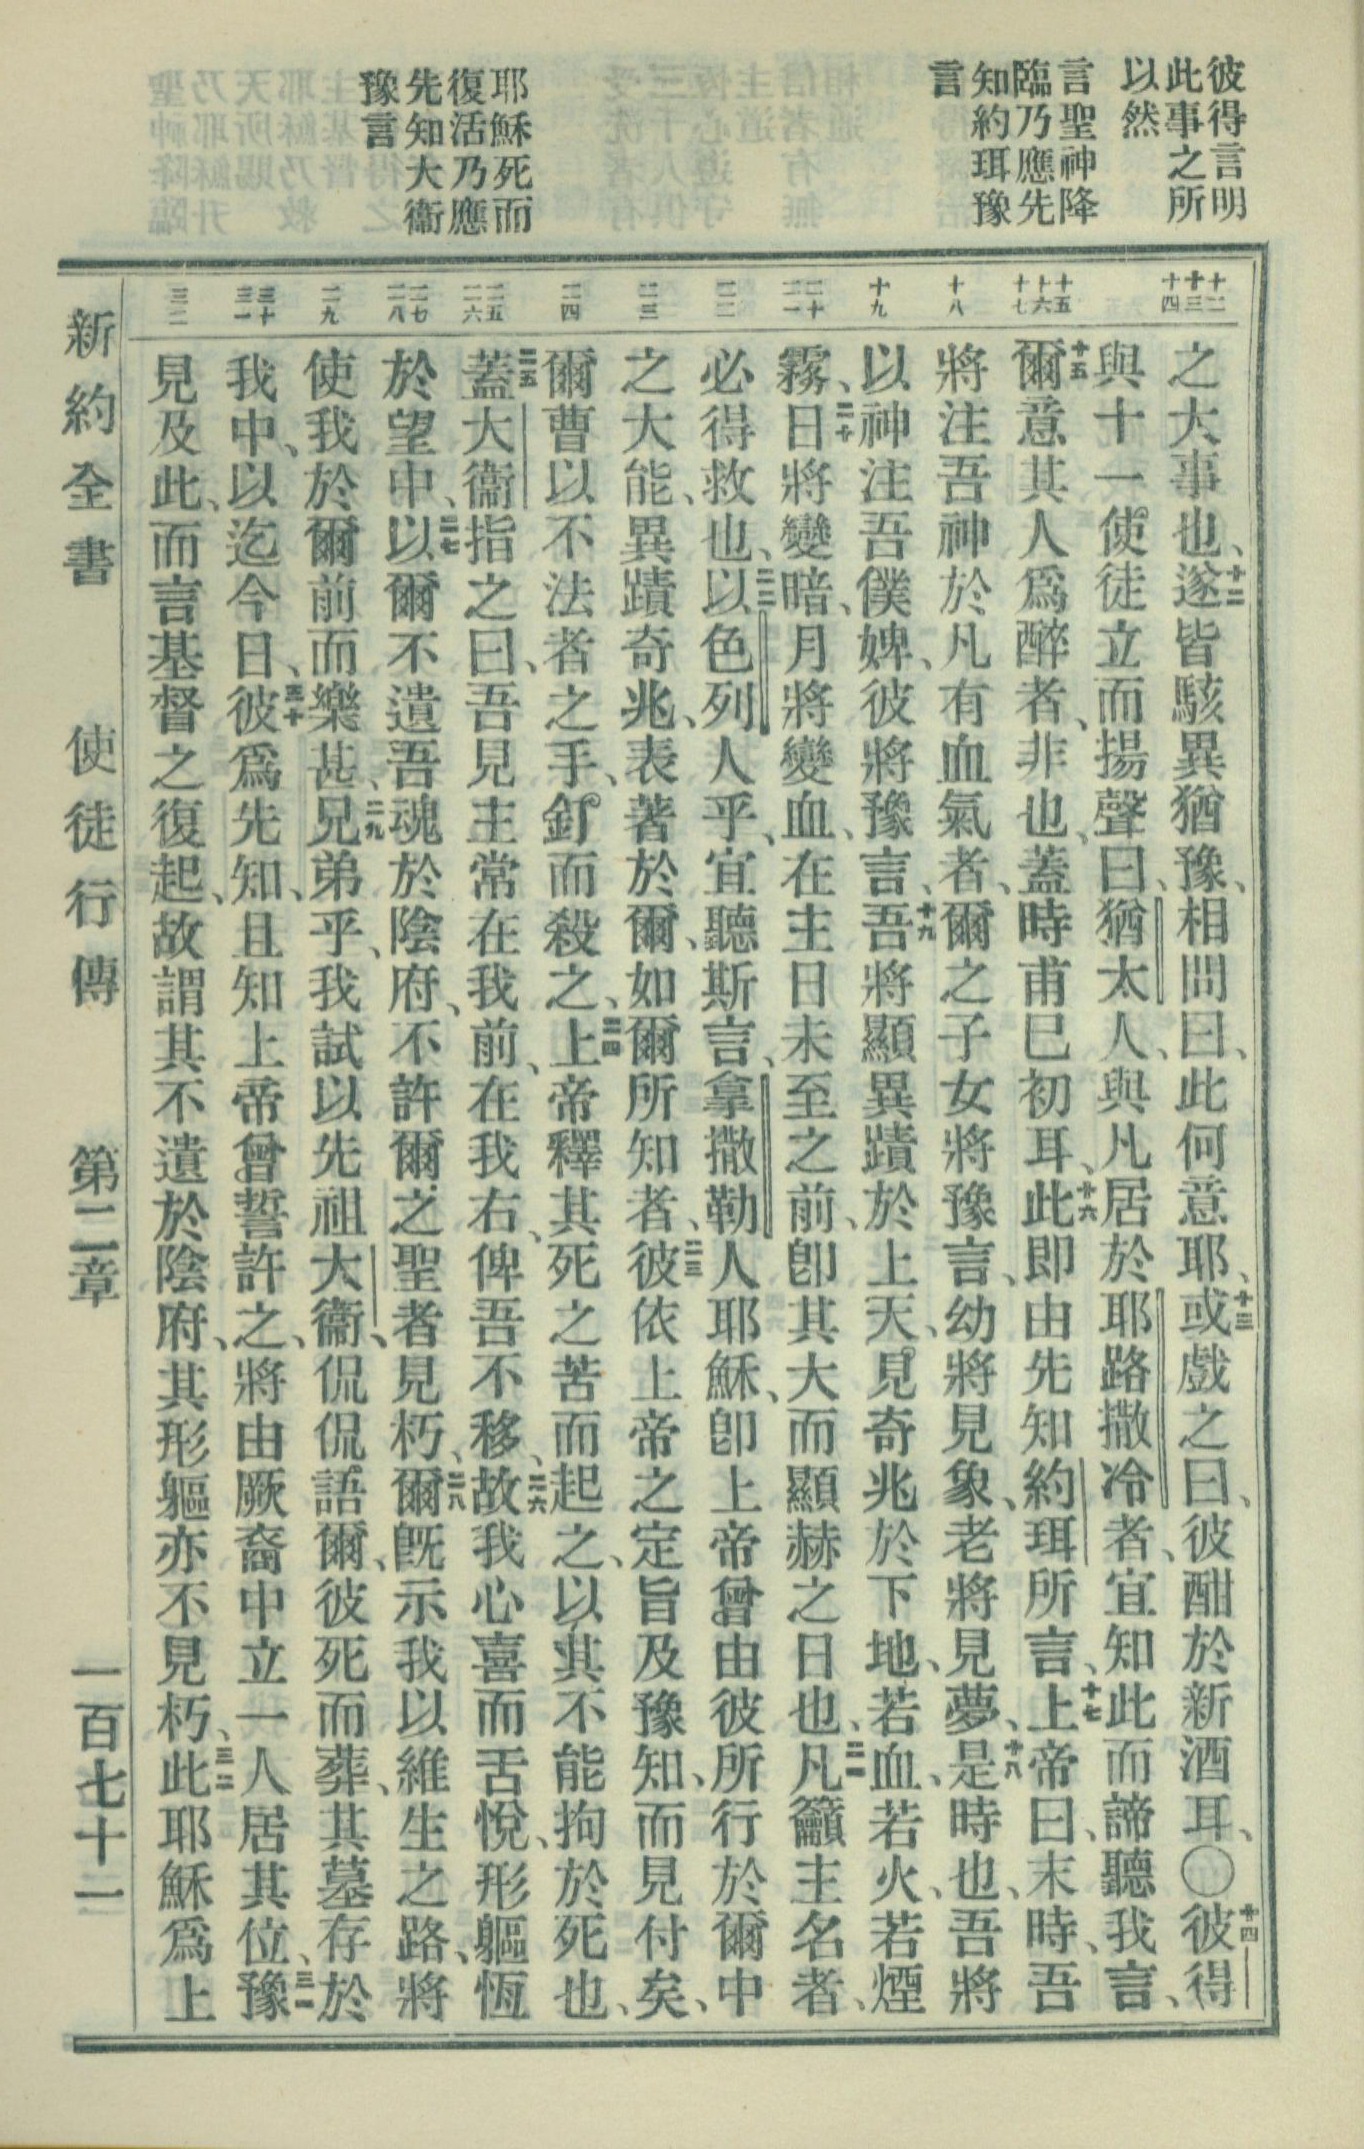 彼得言明
此事之所
以然
言聖神降
臨乃應先
知約珥豫
言
耶穌死而
復活乃應
先知大衞
豫言
十二
十三
十四
十五
十六
十七
十八
十九
二十
二一
二二
二三
二四
二五
二六
二七
二八
二九
三十
三一
三二
之大事也、十二遂皆駭異猶豫、相問曰、此何意耶、十三或戲之曰、彼酣於新酒耳、〇十四彼得
與十一使徒立而揚聲曰、猶太人、與凡居於耶路撒冷者、宜知此而諦聽我言、
十五爾意其人爲醉者、非也、蓋時甫巳初耳、十六此即由先知約珥所言、十七上帝曰、末時、吾
將注吾神於凡有血氣者、爾之子女將豫言、幼將見象、老將見夢、十八是時也、吾將
以神注吾僕婢、彼將豫言、十九吾將顯異蹟於上天、見奇兆於下地、若血、若火、若煙
霧、二十日將變暗、月將變血、在主日未至之前、卽其大而顯赫之日也、二一凡籲主名者、
必得救也、二二以色列人乎、宜聽斯言、拿撒勒人耶穌、卽上帝曾由彼所行於爾中
之大能、異蹟奇兆、表著於爾、如爾所知者、二三彼依上帝之定旨及豫知、而見付矣、
爾曹以不法者之手、釘而殺之、二四上帝釋其死之苦而起之、以其不能拘於死也、
二五蓋大衞指之曰、吾見主常在我前、在我右、俾吾不移、二六故我心喜而舌悅、形軀恆
於望中、二七以爾不遺吾魂於陰府、不許爾之聖者見朽、二八爾旣示我以維生之路、將
使我於爾前而樂甚、二九兄弟乎、我試以先祖大衞、侃侃語爾、彼死而葬、其墓存於
我中、以迄今日、三十彼爲先知、且知上帝曾誓許之、將由厥裔中立一人居其位、三一豫
見及此、而言基督之復起、故謂其不遺於陰府、其形軀亦不見朽、三二此耶穌爲上
新約全書　使徒行傳　第二章　一百七十二